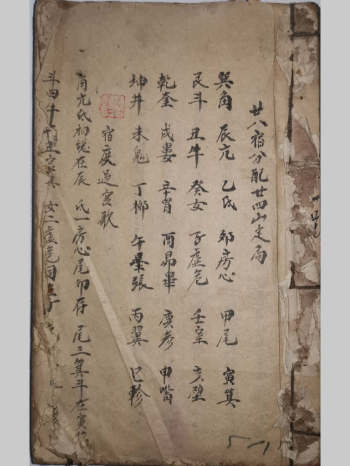 廿八宿分配廿四山定局
巽角 辰亢 乙氐 卯房心 甲尾 寅箕
艮斗 丑牛 癸女 子虚危 壬室 亥壁
乾奎 戌娄 辛胃 酉昴畢 庚参 申觜
坤井 未鬼 丁柳 午星張 丙翼 巳軫
宿度過宮歌
角亢氐初號在辰 氐一房心尾卯存 尾三箕斗在寅
斗四牛 女二虚危同